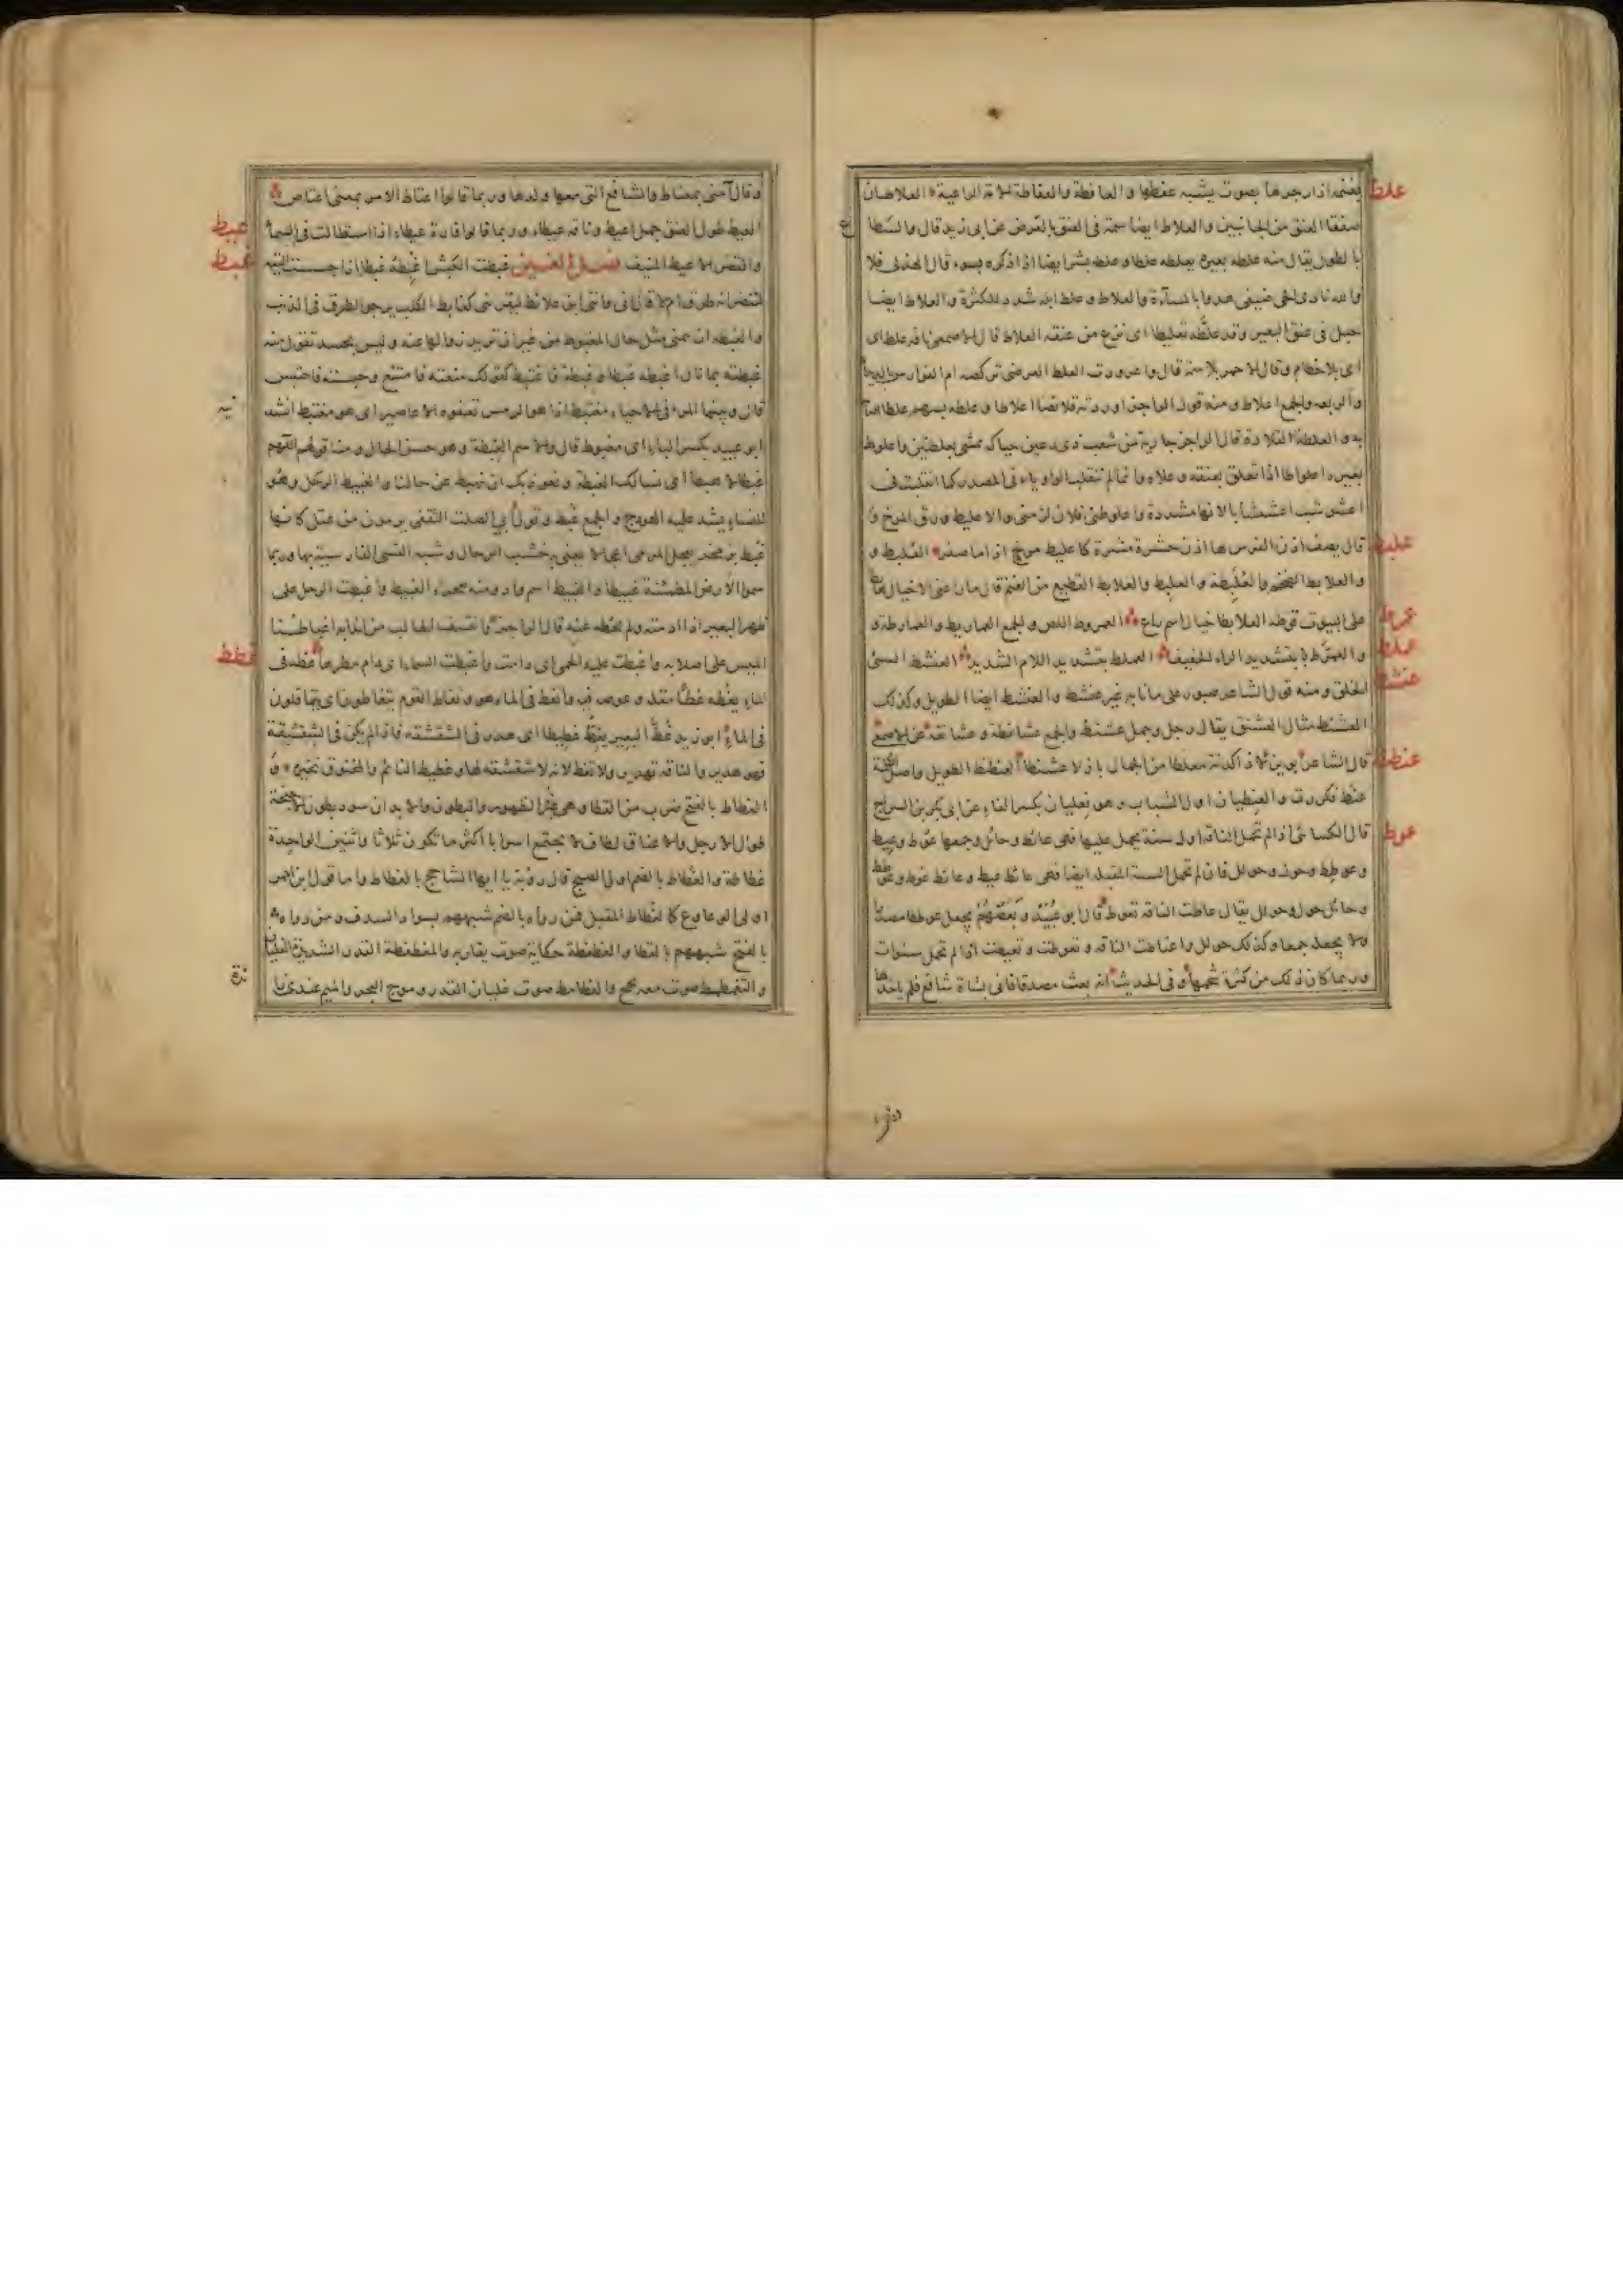 علط
بغنمه اذا زجرها بصوت يشبه عفطها والعافطة والعفاطة الامة الراعية العلاطان
صفقا العنق من الجانبين والعلاط ايضا سمة في العنق بالعرض عن ابى زيد قال والسطاع
بالطول يقال منه علط بعيره يعلطه علطا وعلطه بشر ايضا اذا ذكره بسوء قال الهذلى فلا
والله نادى الحى ضيفى هدوا بالمساءة والعلاط وعلط ابله شدد للكثرة والعلاط ايضا
حبل فى عنق البعير وقد علطه تعليطا اى نزع من عنقه العلاط قال الاصمعى ناقة علط اى
اى بلا خطام وقال الاحمر بلا سمة قال واعرورت العلط العرضى تركضه ام الفوارس بالديداء
والربعه والجمع اعلاط ومنه قول الراجز اوردته قلائصا اعلاطا وعلطه بسهم علطا اصابه
به والعلطة القلادة قال الراجز جارية من شعب ذى رعين حياكة تمشى بعلطتين واعلوط
بعيره اعلواطا اذا تعلق بعنقه وعلاه وانما لم تنقلب الواو ياء فى المصدر كما انقلبت فى
اعشوشب اعشيشابا لانها مشددة واعلوطنى فلان لزمنى والاعليط ورق المرخ و
علبط
قال يصف اذن الفرس لها اذن حشرة مشرة كاعليط مرخ اذا ما صفر العلبط و
والعلابط الضخم والعلبطة والعلبط والعلابط القطيع من الغنم قال ما راعنى الا خيال هابطا
عمرط
على البيوت قوطه العلابطا خيال اسم راع العمروط اللص والجمع العماريط والعمارطة و
عملط
والعمرط بتشديد الراء الخفيف العملط بتشديد اللام الشديد العنشط السىئ
عنشط
الخلق ومنه قول الشاعر صبور على ما نابه غير عنشط والعنشط ايضا الطويل وكذلك
العشنط مثال العشنق يقال رجل وجمل عشنط والجمع عشانطة وعشانقة عن الاصمعى
عنطط
قال الشاعر بويزلا ذا كدنة معلطا من الجمال باذلا عشنطا العنطنط الطويل واصل الكلمة
عنط فكررت والعنطيان اول الشباب وهو فعليان بكسر الفاء عن ابى بكر بن السراج
عوط
قال الكسائى اذا لم تحمل الناقة اول سنة يحمل عليها فهى عائط وحائل وجمعها عوط وعيط
وعوطط وحول وحولل فان لم تحمل السنة المقبلة ايضا فهى عائط عيط وعائط عوط وعوطط
وحائل حول وحولل يقال عاطت الناقة تعوط قال ابو عبيد وبعضهم يجعل عوططا مصدرا
ولا يجعله جمعا وكذلك حولل واعتاطت الناقة وتعوطت وتعيطت اذا لم تحمل سنوات
وربما كان ذلك من كثرة شحمها وفى الحديث انه بعث مصدقا فاتى بشاة شافع فلم ياخذها
وقال ائتنى بمعتاط والشافع التى معها ولدها وربما قالوا اعتاط الامر بمعنى اعتاص
عيط
العيط طول العنق جمل اعيط وناقة عيطاء وربما قالوا قارة عيطاء اذا استطالت فى السماء
غبط
والقصر الاعيط المنيف فصل الغين غبطت الكبش اغبطه غبطا اذا جسست اليته
لتنظر ابه طرق ام لا قال انى واتيى ابن غلاق ليقرينى كغابط الكلب يرجو الطرق فى الذنب
والغبطة ان تتمنى مثل حال المغبوط من غير ان تريد زوالها عنه وليس بحسد تقول منه
غبطته بما نال اغبطه غبطا وغبطة فاغتبط كقولك منعته فامتنع وحبسته فاحتبس
قال وبينما المرء فى الاحياء مغتبط اذا هو الرمس تعفوه الاعاصير اى هو مغتبط انشد
ابو عبيد بكسر الباء اى مغبوط قال والاسم الغبطة وهو حسن الحال ومنه قولهم اللهم
غبطا لا هبطا اى نسالك الغبطة ونعوذ بك ان نهبط عن حالنا والغبيط الرحل وهو
للنساء يشد عليه الهودج والجمع غبط وقول ابى الصلت الثقفى يرمون عن عتل كانها
غبط بزمخر يعجل المرمى اعجالا يعنى به خشب الرحال وشبه القسى الفارسية بها وربما
سموا الارض المطمئنة غبيطا والغبيط اسم واد ومنه صحراء الغبيط واغبطت الرحل على
ظهر البعير اذا ادمته ولم تحطه عنه قال الراجز وانتسف الجالب من اندابه اغباطنا
غطط
الميس على اصلابه واغبطت عليه الحمى اى دامت واغبطت السماء اى دام مطرها غطه فى
الماء يغطه غطا مقله وغوصه فيه وانغط فى الماء هو وتغاط القوم يتغاطون اى يتماقلون
فى الماء ابو زيد غط البعير يغط غطيطا اى هدر فى الشقشقة فاذا لم يكن فى الشقشقة
فهو هدير والناقة تهدر ولا تغط لانه لا شقشقة لها وغطيط النائم والمخنوق نخيره و
الغطاط بالفتح ضرب من القطا وهى غبر الظهور والبطون والابدان سود بطون الاجنحة
طوال الارجل والاعناق لطاف لا تجتمع اسرابا اكثر ما تكون ثلاثا واثنين الواحدة
غطاطة والغطاط بالضم اول الصبح قال رؤبة يا ايها الشاحج بالغطاط واما قول ابن احمر
اولى الوعاوع كالغطاط المقبل فمن رواه بالضم شبههم بسواد السدف ومن رواه
بالفتح شبههم بالقطا والغطغطة حكاية صوت يقاربه والمغطغطة القدر الشديدة الغليان
والتغطمط صوت معه بحح والغطامط صوت غليان القدر وموج البحر والميم عندى زا
ئدة